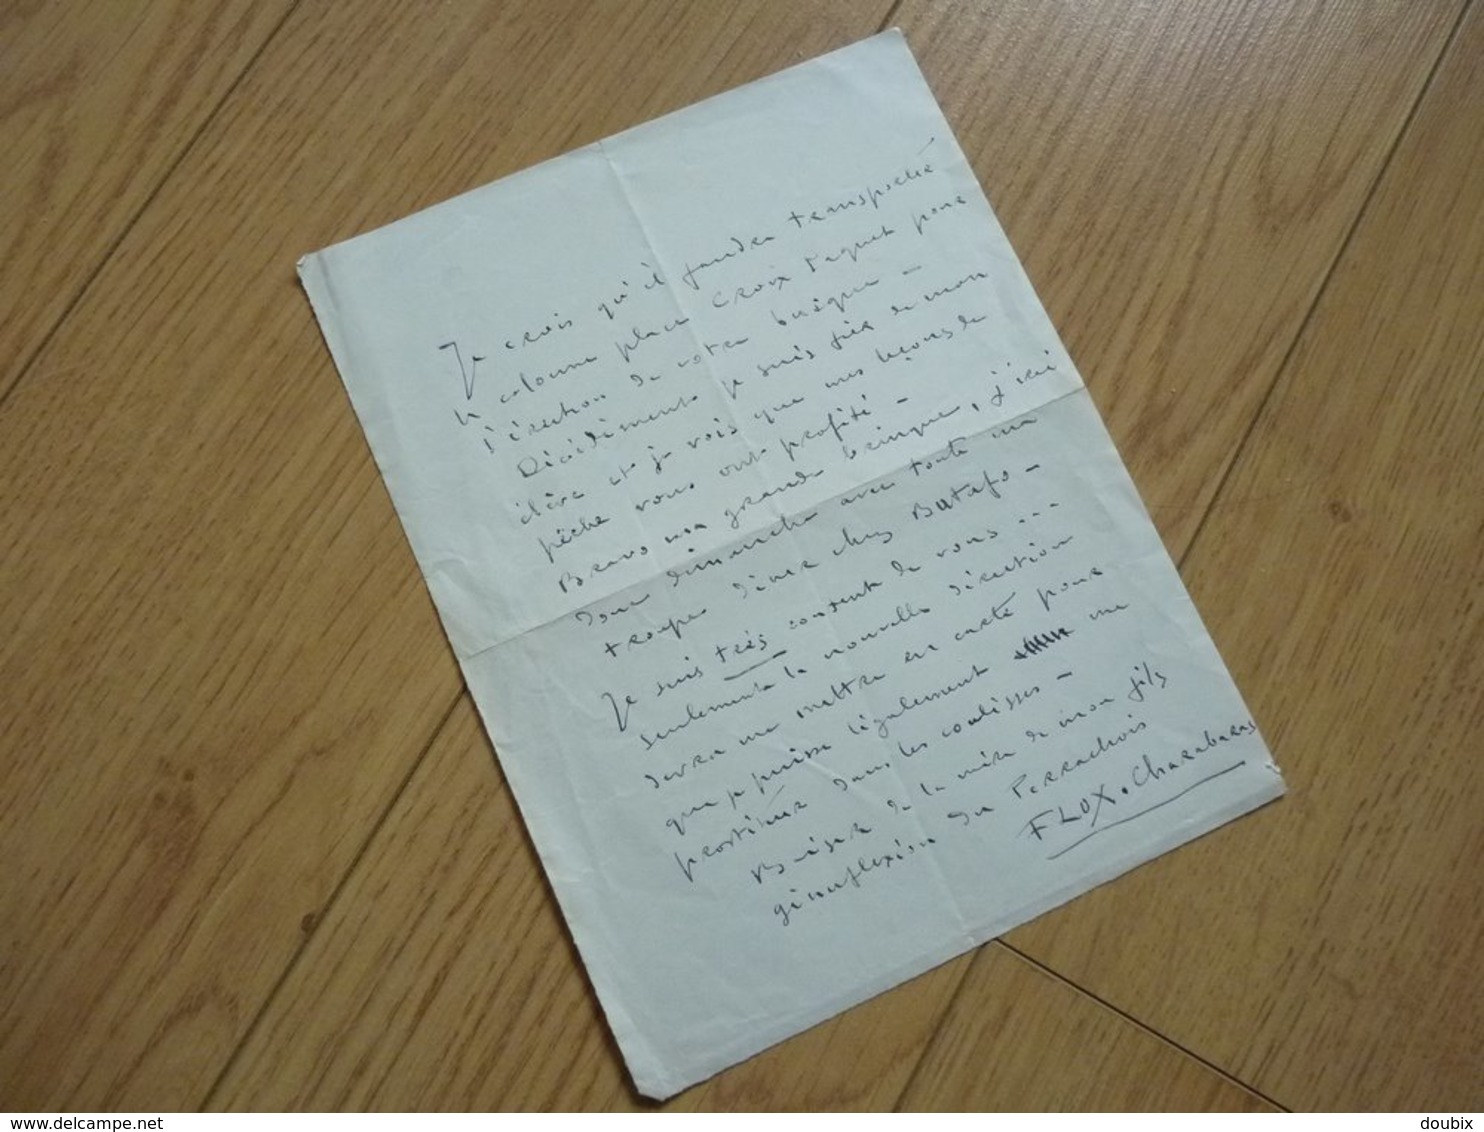 Je crois qu'il faudra transporter
la colonne place Croix Paquet pour
l'érection de votre basique –
Décidément je suis fier de mon
élève et je vois que mes leçons de
pêche vous ont profité –
Bravo ma grande bringue, j'irai
donc dimanche avec toute ma
troupe dîner chez Batafo –
Je suis très content de vous ...
seulement la nouvelle direction
devra me mettre en carte pour
que je puisse légalement me
prostituer dans les coulisses –
Baiser de la mère de mon fils
génuflexion du Perrachois
FLOX. Charabaras
© delcampe.net
doubix